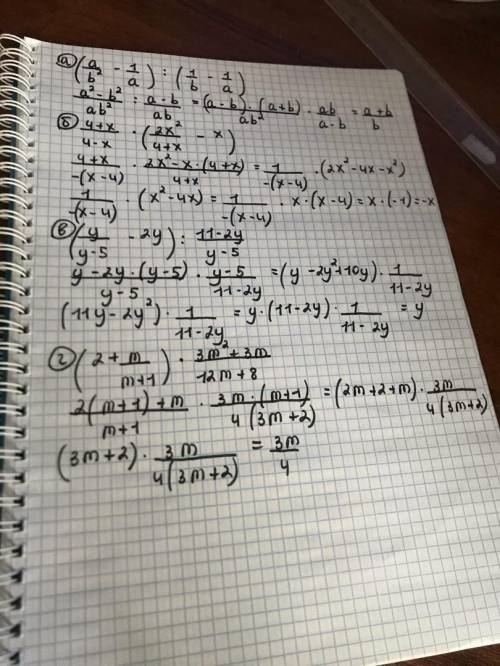 а) (a/b² - 1/a) : (1/b - 1/a)
(a² - b²)/(ab²) : (a - b)/(ab) = ((a - b) · (a + b))/(ab²) · (ab)/(a - b) = (a + b)/b
б) (4+x)/(4-x) · (2x²/(4+x) - x)
(4+x)/(-(x-4)) · (2x² - x · (4+x))/(4+x) = 1/(-(x-4)) · (2x² - 4x - x²)
1/(-(x-4)) · (x² - 4x) = 1/(-(x-4)) · x · (x-4) = x · (-1) = -x
в) (y/(y-5) - 2y) : (11-2y)/(y-5)
(y - 2y · (y-5))/(y-5) · (y-5)/(11-2y) = (y - 2y² + 10y) · 1/(11-2y)
(11y - 2y²) · 1/(11-2y) = y · (11-2y) · 1/(11-2y) = y
г) (2 + m/(m+1)) · (3m² + 3m)/(12m+8)
(2(m+1) + m)/(m+1) · (3m · (m+1))/(4(3m+2)) = (2m+2+m) · 3m/(4(3m+2))
(3m+2) · 3m/(4(3m+2)) = 3m/4